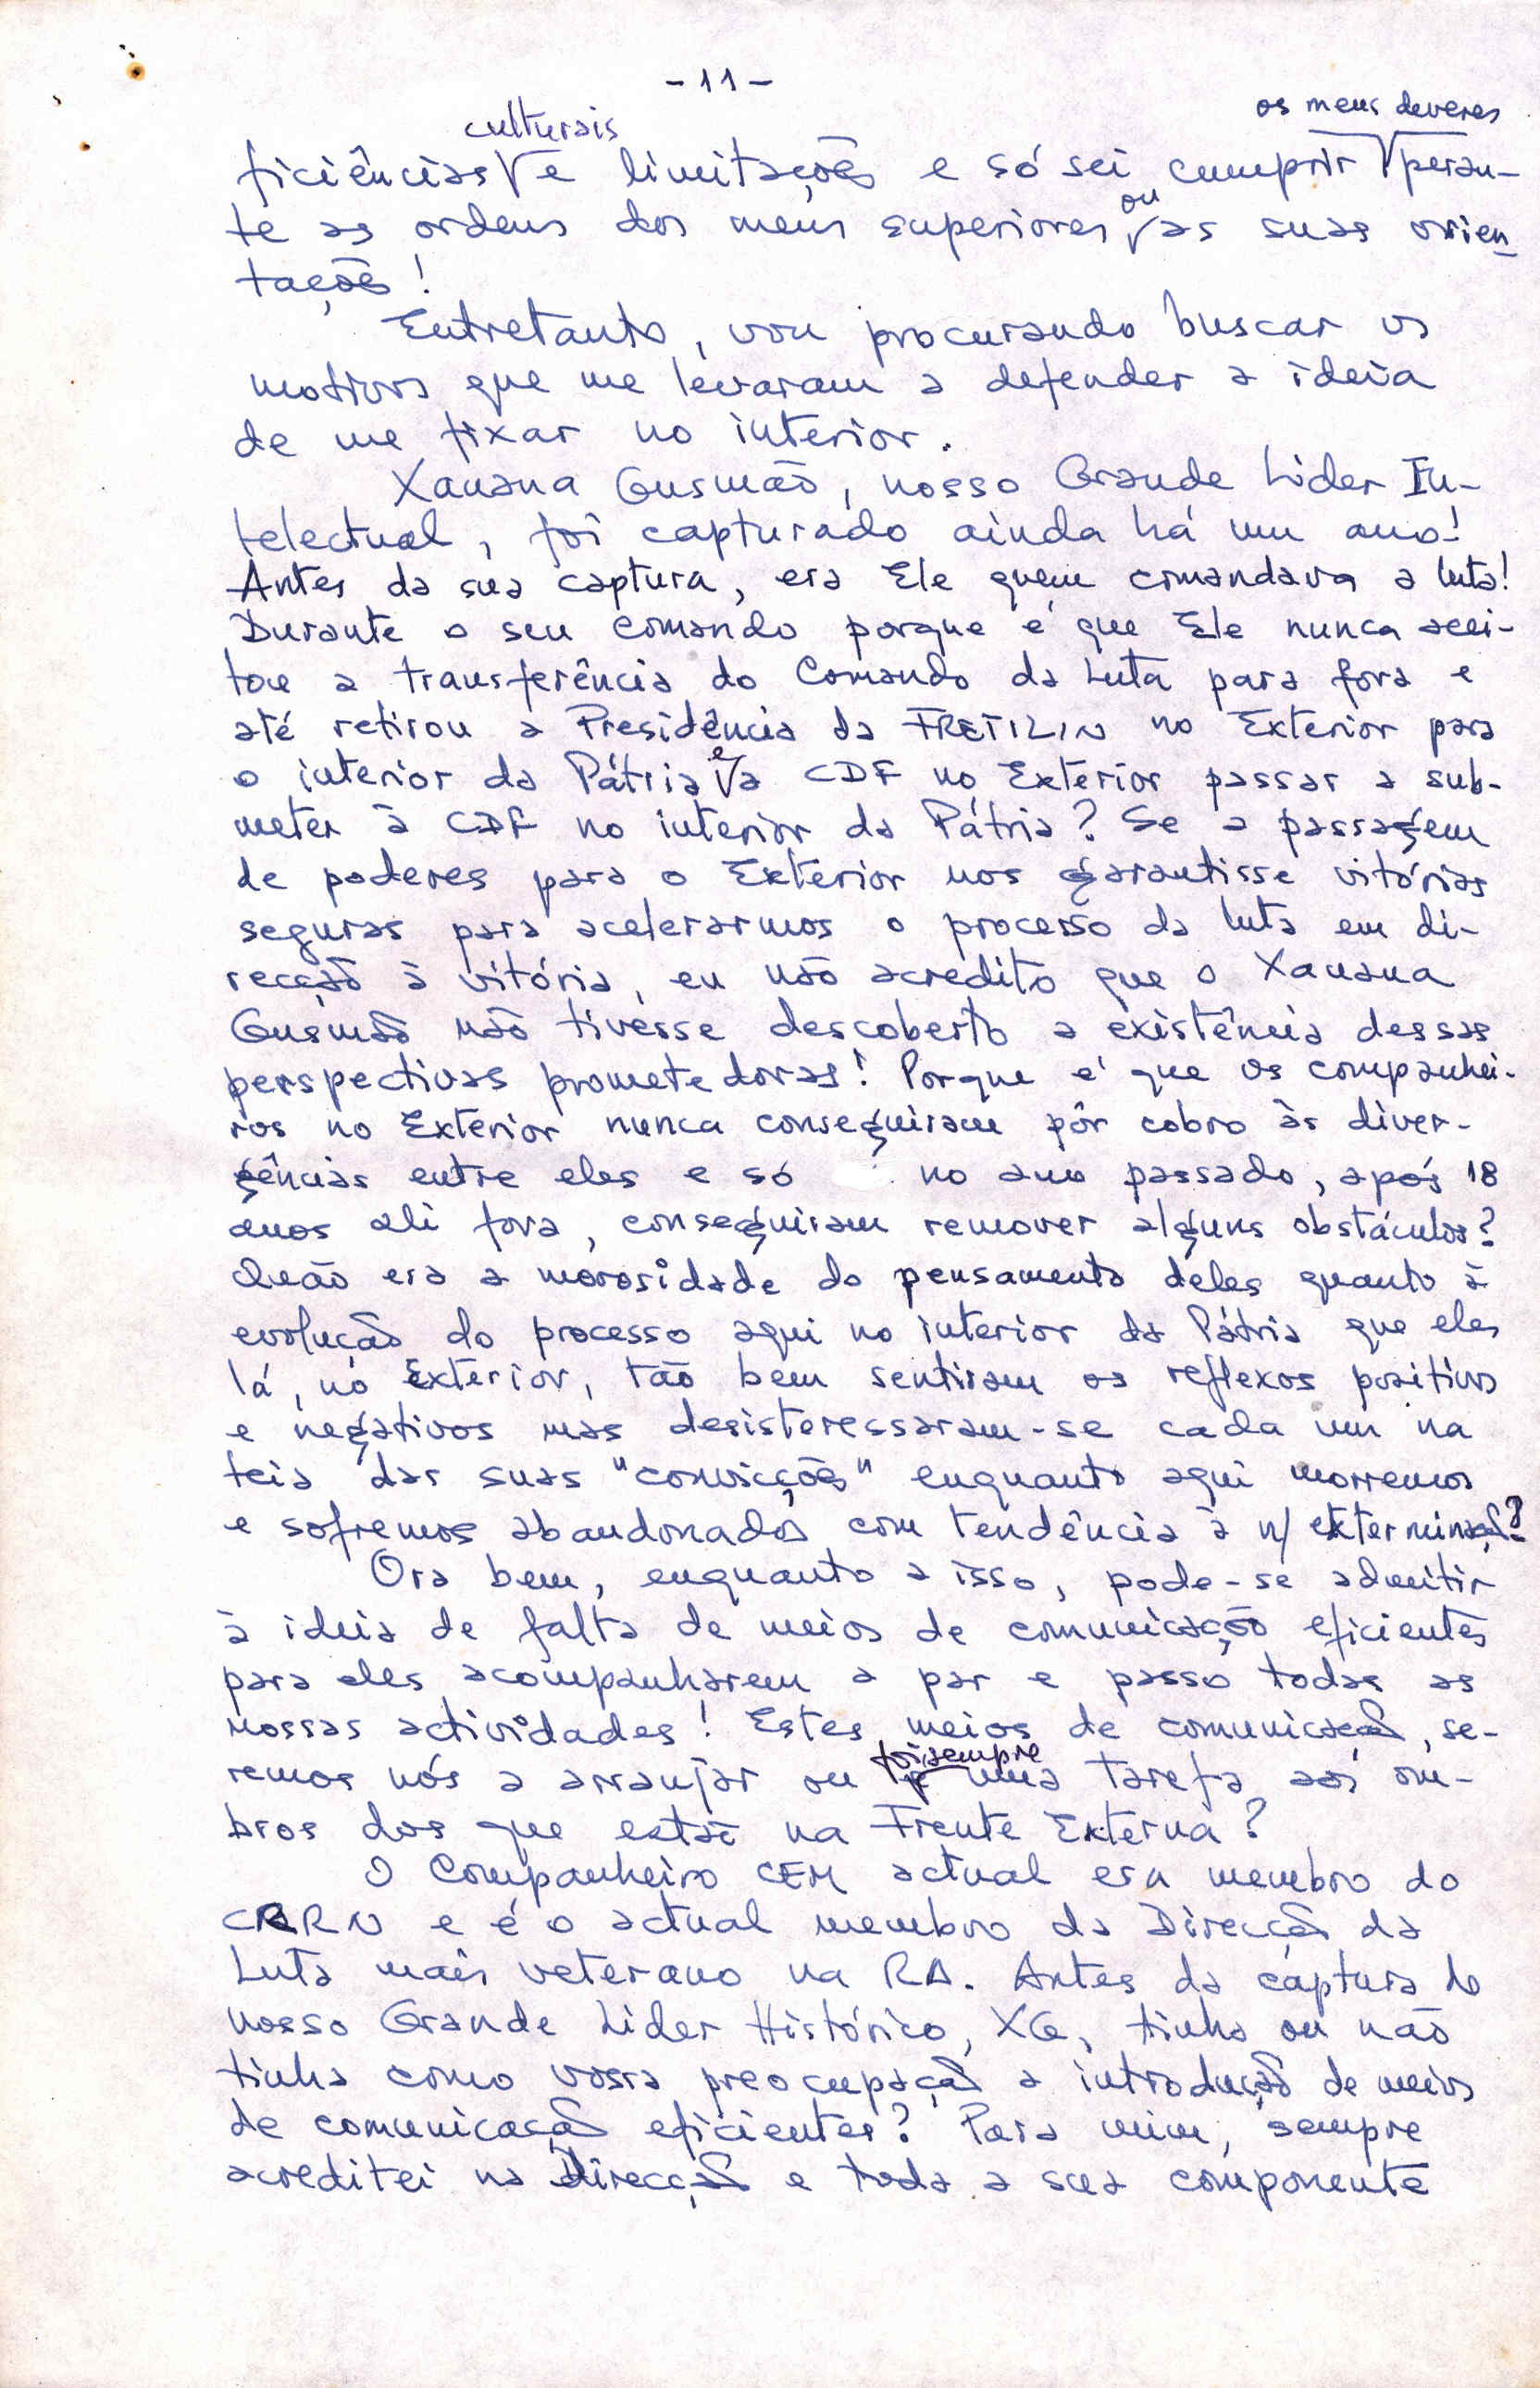 - 11 -
culturais
os meus deveres
ficiências e limitações e só sei cumprir peran-
ou
te as ordens dos meus superiores as suas orien-
tações!
Entretanto, vou procurando buscar os
motivos que me levaram a defender a ideia
de me fixar no interior.
Xanana Gusmão, nosso Grande Lider In-
telectual, foi capturado ainda há um ano!
Antes da sua captura, era Ele quem comandava a luta!
Durante o seu comando porque é que Ele nunca acei-
tou a transferência do Comando da Luta para fora e
até retirou a Presidência da FRETILIN no Exterior para
e
o interior da Pátria a CDF no Exterior passar a sub-
meter à CDF no interior da Pátria? Se a passagem
de poderes para o Exterior nos garantisse vitórias
seguras para acelerarmos o processo da luta em di-
recção à vitória, eu não acredito que o Xanana
Gusmão não tivesse descoberto a existência dessas
perspectivas prometedoras! Porque é que os companhei-
ros no Exterior nunca conseguiram pôr cobro às diver-
gências entre eles e só no ano passado, após 18
anos ali fora, conseguiram remover alguns obstáculos?
Não era a morosidade do pensamento deles quanto à
evolução do processo aqui no interior da Pátria que eles
lá, no Exterior, tão bem sentiram os reflexos positivos
e negativos mas desisteressaram-se cada um na
teia das suas "convicções" enquanto aqui morremos
e sofremos abandonados com tendência à n/ exterminação?
Ora bem, enquanto a isso, pode-se admitir
à ideia de falta de meios de comunicação eficientes
para eles acompanharem a par e passo todas as
nossas actividades! Estes meios de comunicação, se-
foi sempre
remos nós a arranjar ou é uma tarefa aos om-
bros dos que estão na Frente Externa?
O Companheiro CEM actual era membro do
CRRN e é o actual membro da Direcção da
Luta mais veterano na RA. Antes da captura do
nosso Grande Lider Histórico, XG, tinha ou não
tinha como vossa preocupação a introdução de meios
de comunicação eficientes? Para mim, sempre
acreditei na Direcção e toda a sua componente